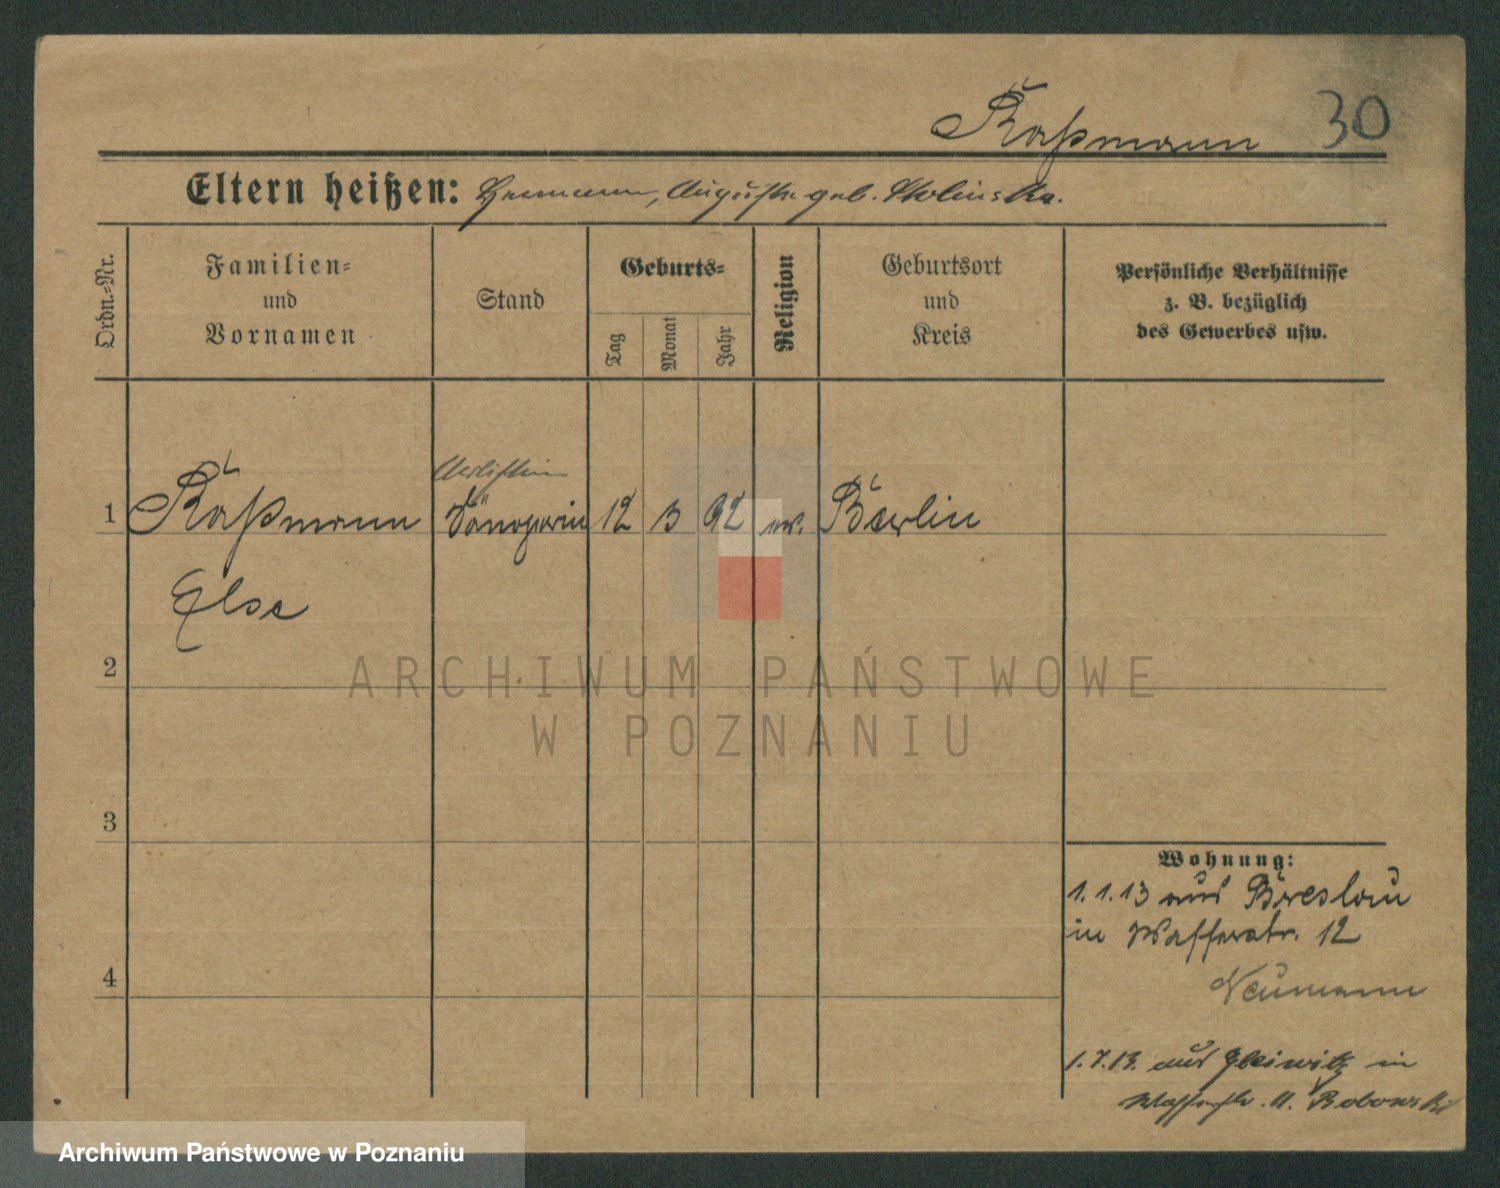 Raßmann 30
Eltern heißen: Hermann, Auguste geb.
Ordn.=Nr.
Familien=
und
Vornamen
Stand
Geburts=
Tag
Monat
Jahr
Religion
Geburtsort
und
Kreis
Persönliche Verhältnisse
z. B. bezüglich
des Gewerbes usw.
Artistin
1 Raßmann Sängerin 12 3 92 ev. Berlin
Else
2
ARCHIWUM PAŃSTWOWE
W POZNANIU
3
Wohnung:
1.1.13 aus Breslau
in Wasserstr. 12
4
Neumann
1.7.13. aus Gleiwitz in
Wasserstr. 11. Bobowski
Archiwum Państwowe w Poznaniu